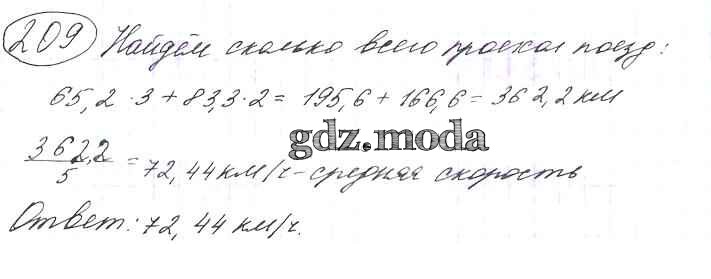 209 Найдём сколько всего проехал поезд:
65,2 · 3 + 83,3 · 2 = 195,6 + 166,6 = 362,2 км
gdz.moda
362,2
5
= 72,44 км/ч - средняя скорость
Ответ: 72,44 км/ч.